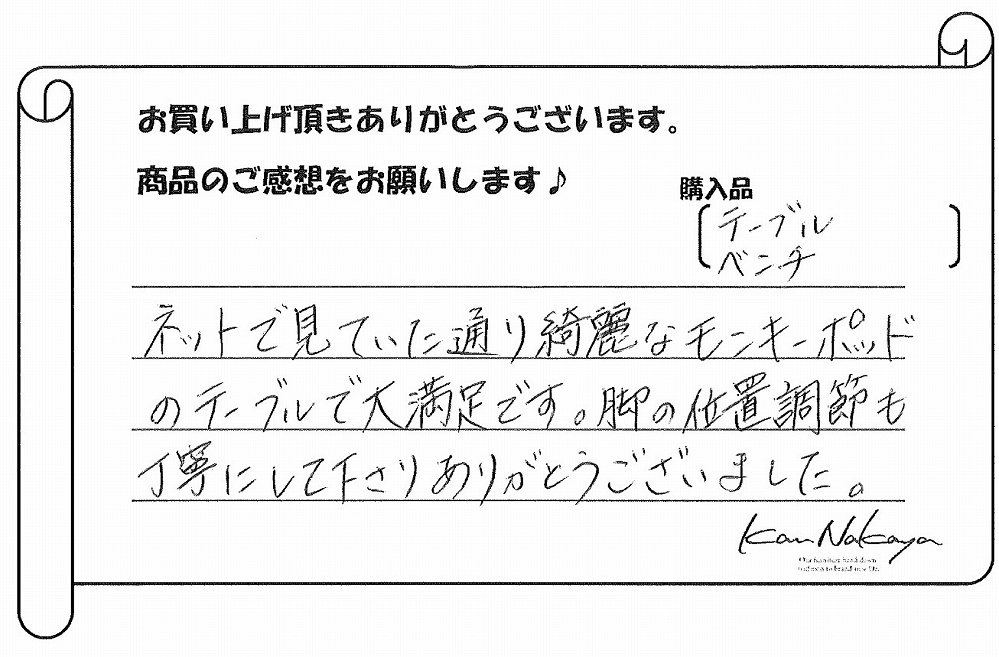 お買い上げ頂きありがとうございます。
商品のご感想をお願いします♪
購入品
テーブル
ベンチ
ネットで見ていた通り綺麗なモンキーポッド
のテーブルで大満足です。脚の位置調節も
丁寧にして下さりありがとうございました。
Kan Nakaya